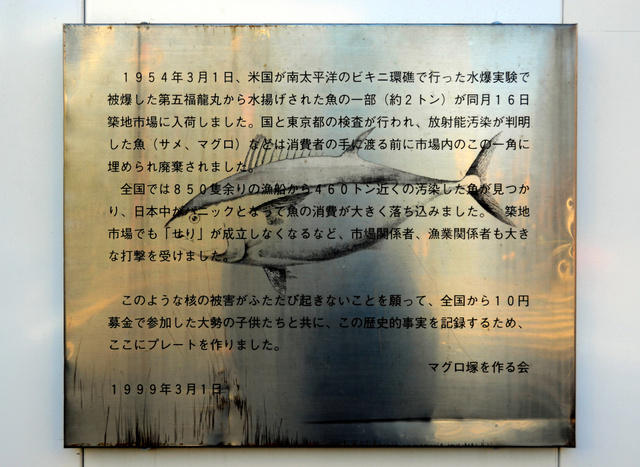 1954年3月1日、米国が南太平洋のビキニ環礁で行った水爆実験で
被爆した第五福龍丸から水揚げされた魚の一部（約2トン）が同月16日
築地市場に入荷しました。国と東京都の検査が行われ、放射能汚染が判明
した魚（サメ、マグロ）などは消費者の手に渡る前に市場内のこの一角に
埋められ廃棄されました。
全国では850隻余りの漁船から460トン近くの汚染した魚が見つか
り、日本中がパニックとなって魚の消費が大きく落ち込みました。　築地
市場でも「せり」が成立しなくなるなど、市場関係者、漁業関係者も大き
な打撃を受けました。
このような核の被害がふたたび起きないことを願って、全国から10円
募金で参加した大勢の子供たちと共に、この歴史的事実を記録するため、
ここにプレートを作りました。
マグロ塚を作る会
1999年3月1日